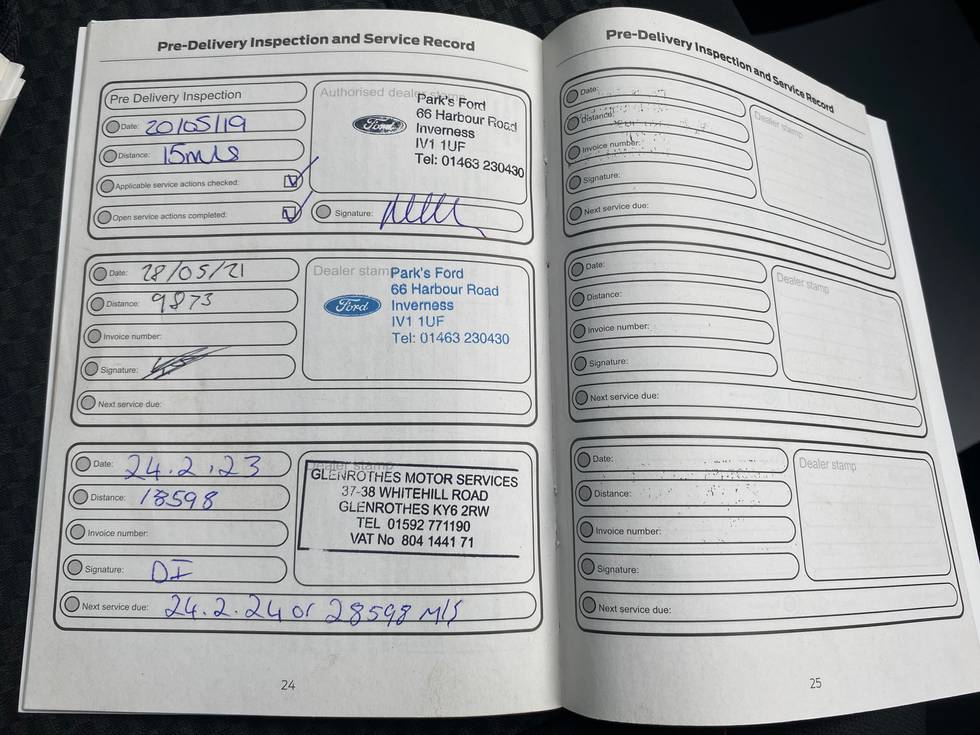 Pre-Delivery Inspection and Service Record
Pre Delivery Inspection
Date: 20/05/19
Distance: 15mls
Applicable service actions checked:
Open service actions completed:
Authorised dealer stamp
Ford
Park's Ford
66 Harbour Road
Inverness
IV1 1UF
Tel: 01463 230430
Signature:
Date: 28/05/21
Distance: 9873
Invoice number:
Signature:
Next service due:
Dealer stamp
Ford
Park's Ford
66 Harbour Road
Inverness
IV1 1UF
Tel: 01463 230430
Date: 24.2.23
Distance: 18598
Invoice number:
Signature: DI
Next service due: 24.2.24 or 28598 Mls
Dealer stamp
GLENROTHES MOTOR SERVICES
37-38 WHITEHILL ROAD
GLENROTHES KY6 2RW
TEL 01592 771190
VAT No 804 1441 71
24
Pre-Delivery Inspection and Service Record
Date:
Distance:
Invoice number:
Signature:
Next service due:
Dealer stamp
Date:
Distance:
Invoice number:
Signature:
Next service due:
Dealer stamp
Date:
Distance:
Invoice number:
Signature:
Next service due:
Dealer stamp
25